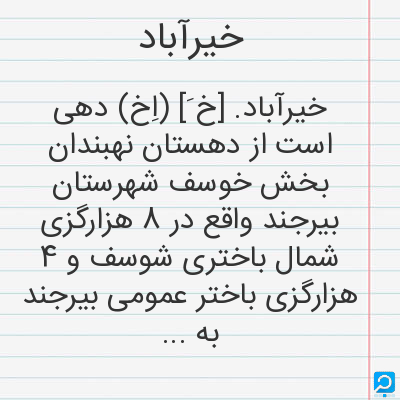 خیرآباد
خیرآباد. [خ َ] (اِخ) دهی
است از دهستان نهبندان
بخش خوسف شهرستان
بیرجند واقع در ۸ هزارگزی
شمال باختری شوسف و ۴
هزارگزی باختر عمومی بیرجند
به ...